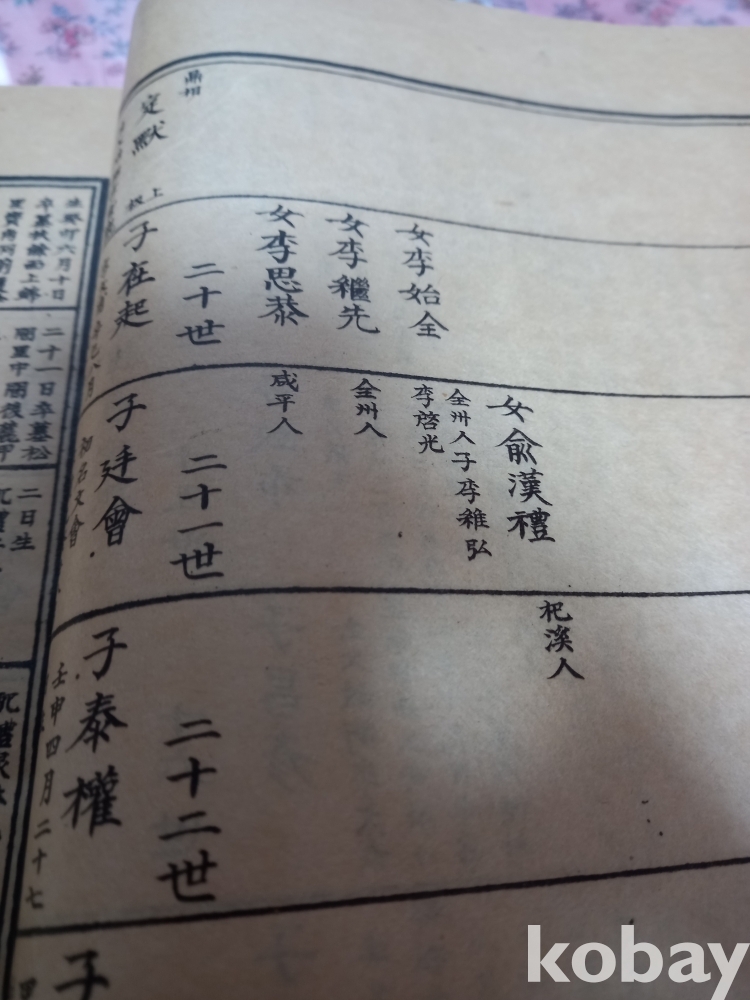 鼎相
定默
上
女李始全
女李繼先
女李思恭
二十世
子在起
女兪漢禮
全州人子李雅弘
李啓光
全州人
咸平人
二十一世
子廷會
初名文會
杞溪人
二十二世
子泰權
壬申四月二十七
子
二十一日卒墓松
二日生
生癸卯六月十日
kobay